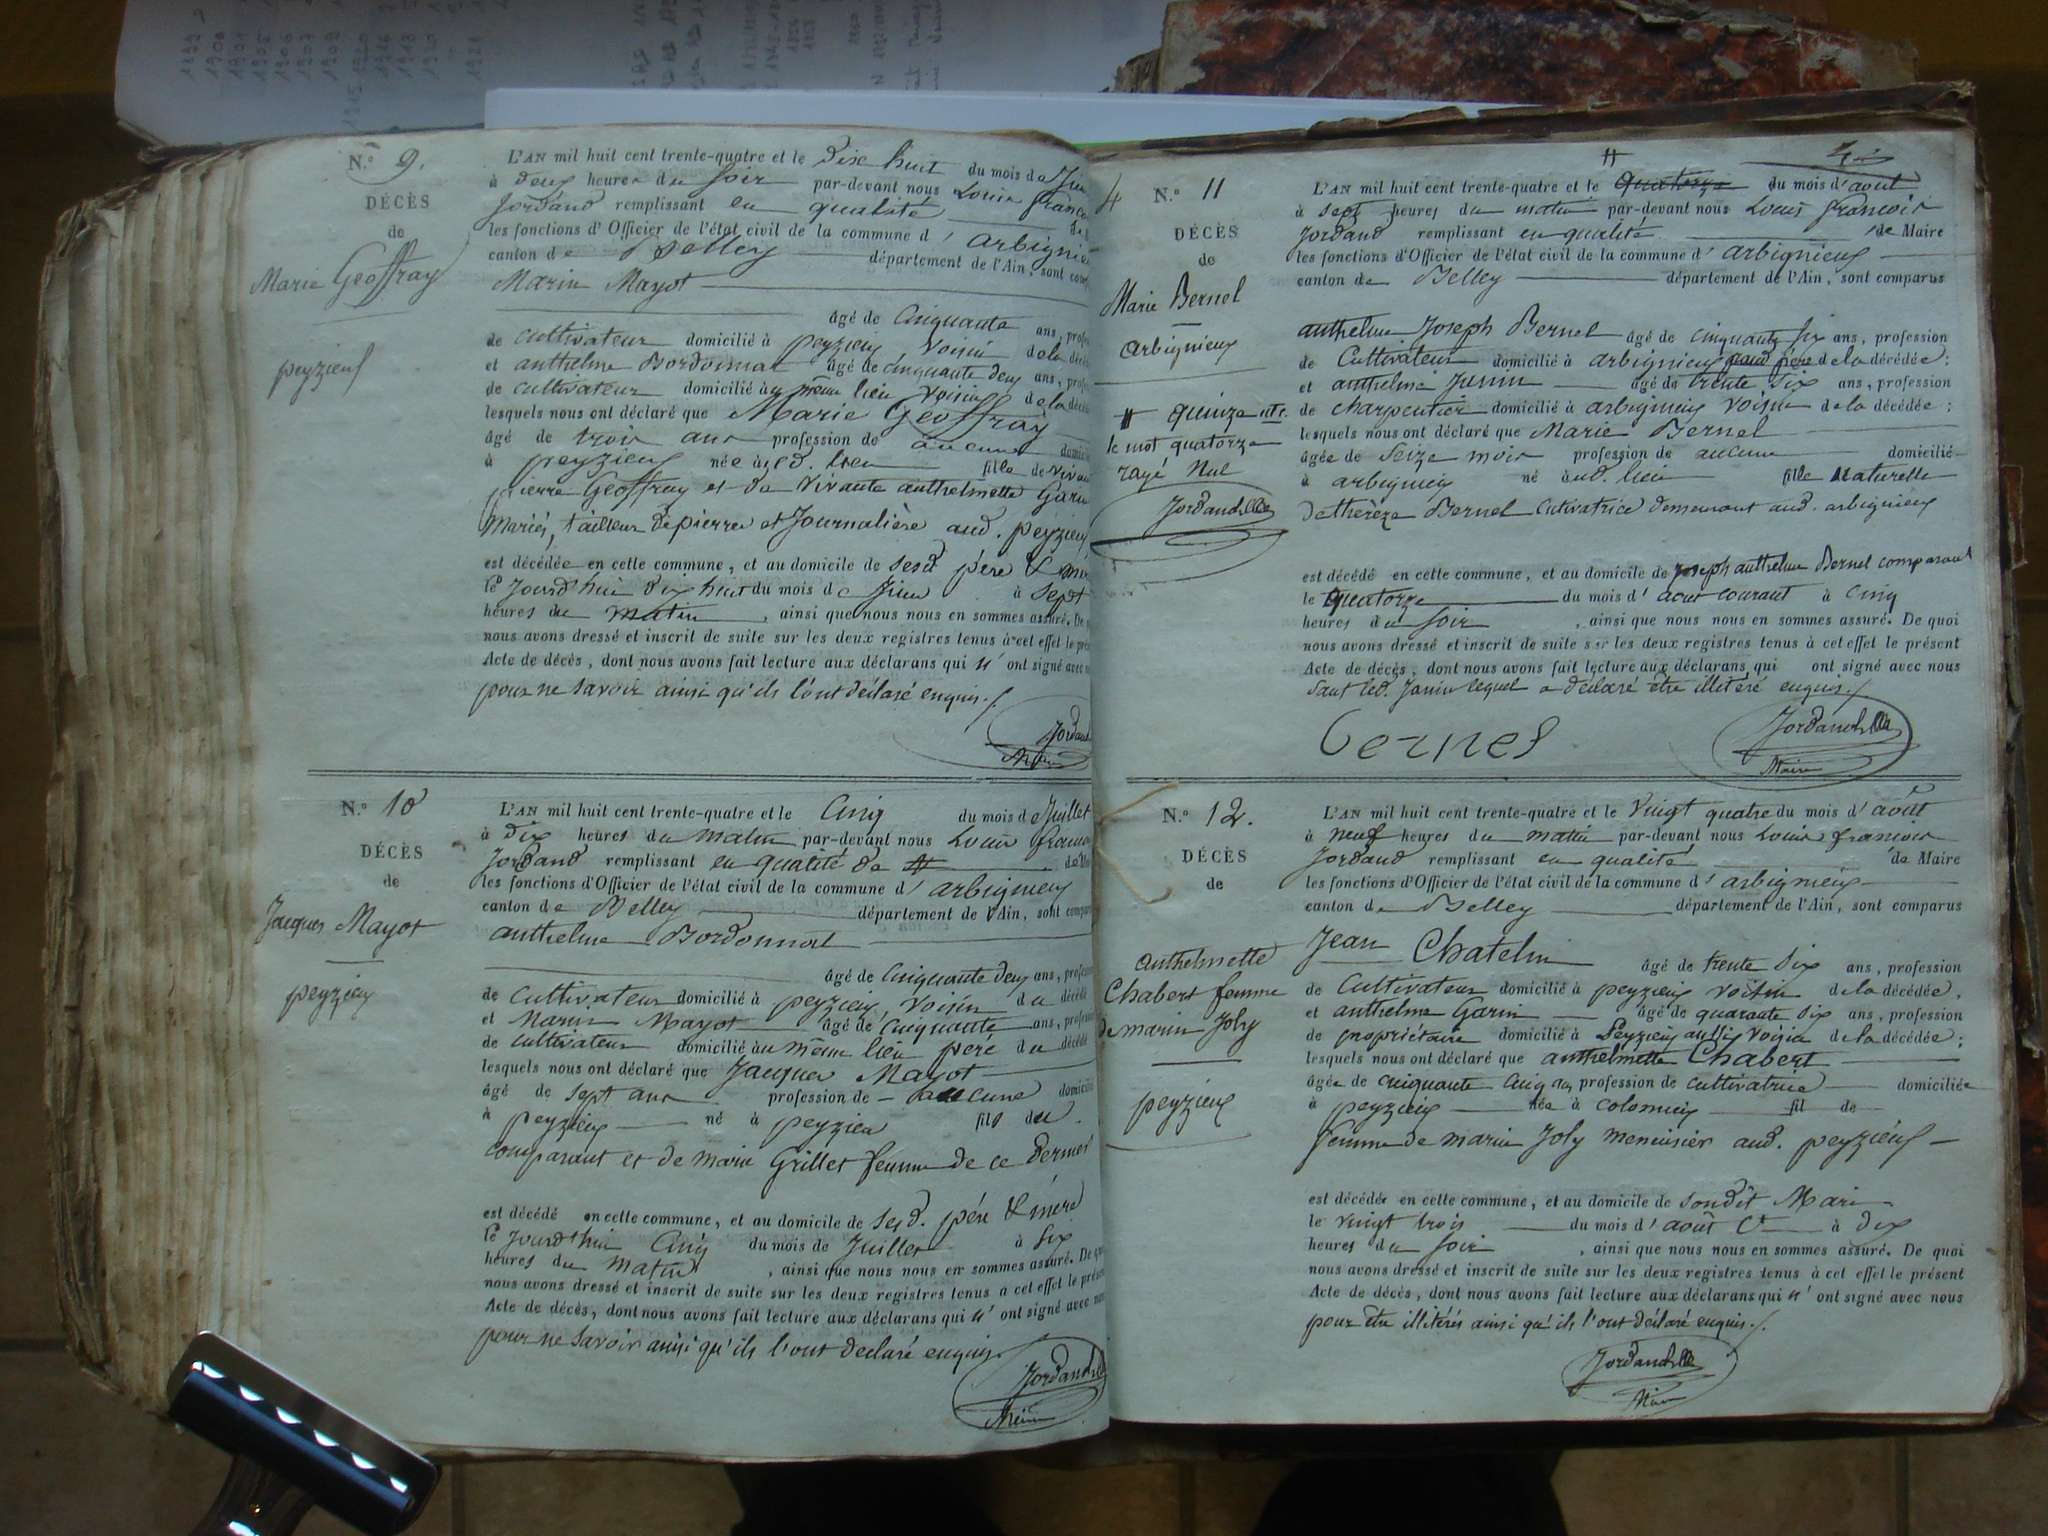 N.o 9.
DÉCÈS
de
Marie Geoffray
peyzieux
L'AN mil huit cent trente-quatre et le dix huit du mois de Juin
à deux heures du soir par-devant nous Louis françois
Jordand remplissant en qualité
les fonctions d'Officier de l'état civil de la commune d'arbignieux
canton de Belley département de l'Ain, sont
Marin Mayot
âgé de Cinquante ans,
de cultivateur domicilié à peyzieux voisin de la
et anthelme Bordonnat âgé de cinquante deux ans,
de cultivateur domicilié au même lieu voisin de la
lesquels nous ont déclaré que Marie Geoffray
âgé de trois ans profession de aucune
à peyzieux née aud. lieu fille de vivant
pierre Geoffray et de vivante anthelmette Garin
mariés, tailleur de pierre et Journalière aud. peyzieux
est décédée en cette commune, et au domicile de sesd. père & mère
le Jourd'hui dix huit du mois de Juin à sept
heures du matin, ainsi que nous nous en sommes assuré. De
nous avons dressé et inscrit de suite sur les deux registres tenus à cet effet le
Acte de décès, dont nous avons fait lecture aux déclarans qui n'ont signé avec
pour ne savoir ainsi qu'ils l'ont déclaré enquis./.
N.o 10
DÉCÈS
de
Jacques Mayot
peyzieux
L'AN mil huit cent trente-quatre et le Cinq du mois de Juillet
à dix heures du matin par-devant nous Louis
Jordand remplissant en qualité de
les fonctions d'Officier de l'état civil de la commune d'arbignieux
canton de Belley département de l'Ain, sont
anthelme Bordonnat
âgé de Cinquante deux ans,
de cultivateur domicilié à peyzieux voisin du décédé
et Marin Mayot âgé de Cinquante ans,
de cultivateur domicilié au même lieu père du décédé
lesquels nous ont déclaré que Jacques Mayot
âgé de sept ans profession de aucune domicilié
à peyzieux né à peyzieu fils du
comparant et de marie Grillet femme de ce dernier
est décédé en cette commune, et au domicile de sesd. père & mère
le Jourd'hui Cinq du mois de Juillet à six
heures du matin, ainsi que nous nous en sommes assuré. De
nous avons dressé et inscrit de suite sur les deux registres tenus à cet effet le
Acte de décès, dont nous avons fait lecture aux déclarans qui n'ont signé avec
pour ne savoir ainsi qu'ils l'ont declaré enquis.
Maire
4
N.o 11
DÉCÈS
de
Marie Bernel
arbignieux
# quinze
le mot quatorze
rayé Nul
#
L'AN mil huit cent trente-quatre et le quatorze du mois d'août
à sept heures du matin par-devant nous Louis françois
Jordand remplissant en qualité de Maire
les fonctions d'Officier de l'état civil de la commune d'arbignieux
canton de Belley département de l'Ain, sont comparus
anthelme Joseph Bernel âgé de cinquante six ans, profession
de Cultivateur domicilié à arbignieux grand père de la décédée;
et anthelme Junin âgé de trente six ans, profession
de charpentier domicilié à arbignieux voisin de la décédée;
lesquels nous ont déclaré que Marie Bernel
âgée de seize mois profession de aucune domicilié
à arbignieux né aud. lieu fille Naturelle
de thérèze Bernel Cultivatrice demeurant aud. arbignieux
est décédé en cette commune, et au domicile de Joseph anthelme Bernel comparant
le quatorze du mois d'aout courant à cinq
heures du soir, ainsi que nous nous en sommes assuré. De quoi
nous avons dressé et inscrit de suite sur les deux registres tenus à cet effet le présent
Acte de décès, dont nous avons fait lecture aux déclarans qui ont signé avec nous
sauf led. Junin lequel a déclaré être illitéré enquis./.
Bernel
Maire
N.o 12.
DÉCÈS
de
anthelmette
Chabert femme
de marin Joly
peyzieux
L'AN mil huit cent trente-quatre et le vingt quatre du mois d'août
à neuf heures du matin par-devant nous Louis françois
Jordand remplissant en qualité de Maire
les fonctions d'Officier de l'état civil de la commune d'arbignieux
canton de Belley département de l'Ain, sont comparus
Jean Chatelin âgé de trente six ans, profession
de Cultivateur domicilié à peyzieux voisin de la décédée,
et anthelme Garin âgé de quarante six ans, profession
de propriétaire domicilié à Peyzieux aussi voisin de la décédée;
lesquels nous ont déclaré que anthelmette Chabert
âgée de cinquante cinq ans profession de cultivatrice domiciliée
à peyzieux née à colomieux fil de
femme de marin Joly menuisier aud. peyzieux
est décédée en cette commune, et au domicile de sondit Mari
le vingt trois du mois d'août Ct à dix
heures du soir, ainsi que nous nous en sommes assuré. De quoi
nous avons dressé et inscrit de suite sur les deux registres tenus à cet effet le présent
Acte de décès, dont nous avons fait lecture aux déclarans qui n'ont signé avec nous
pour être illitérés ainsi qu'ils l'ont déclaré enquis./.